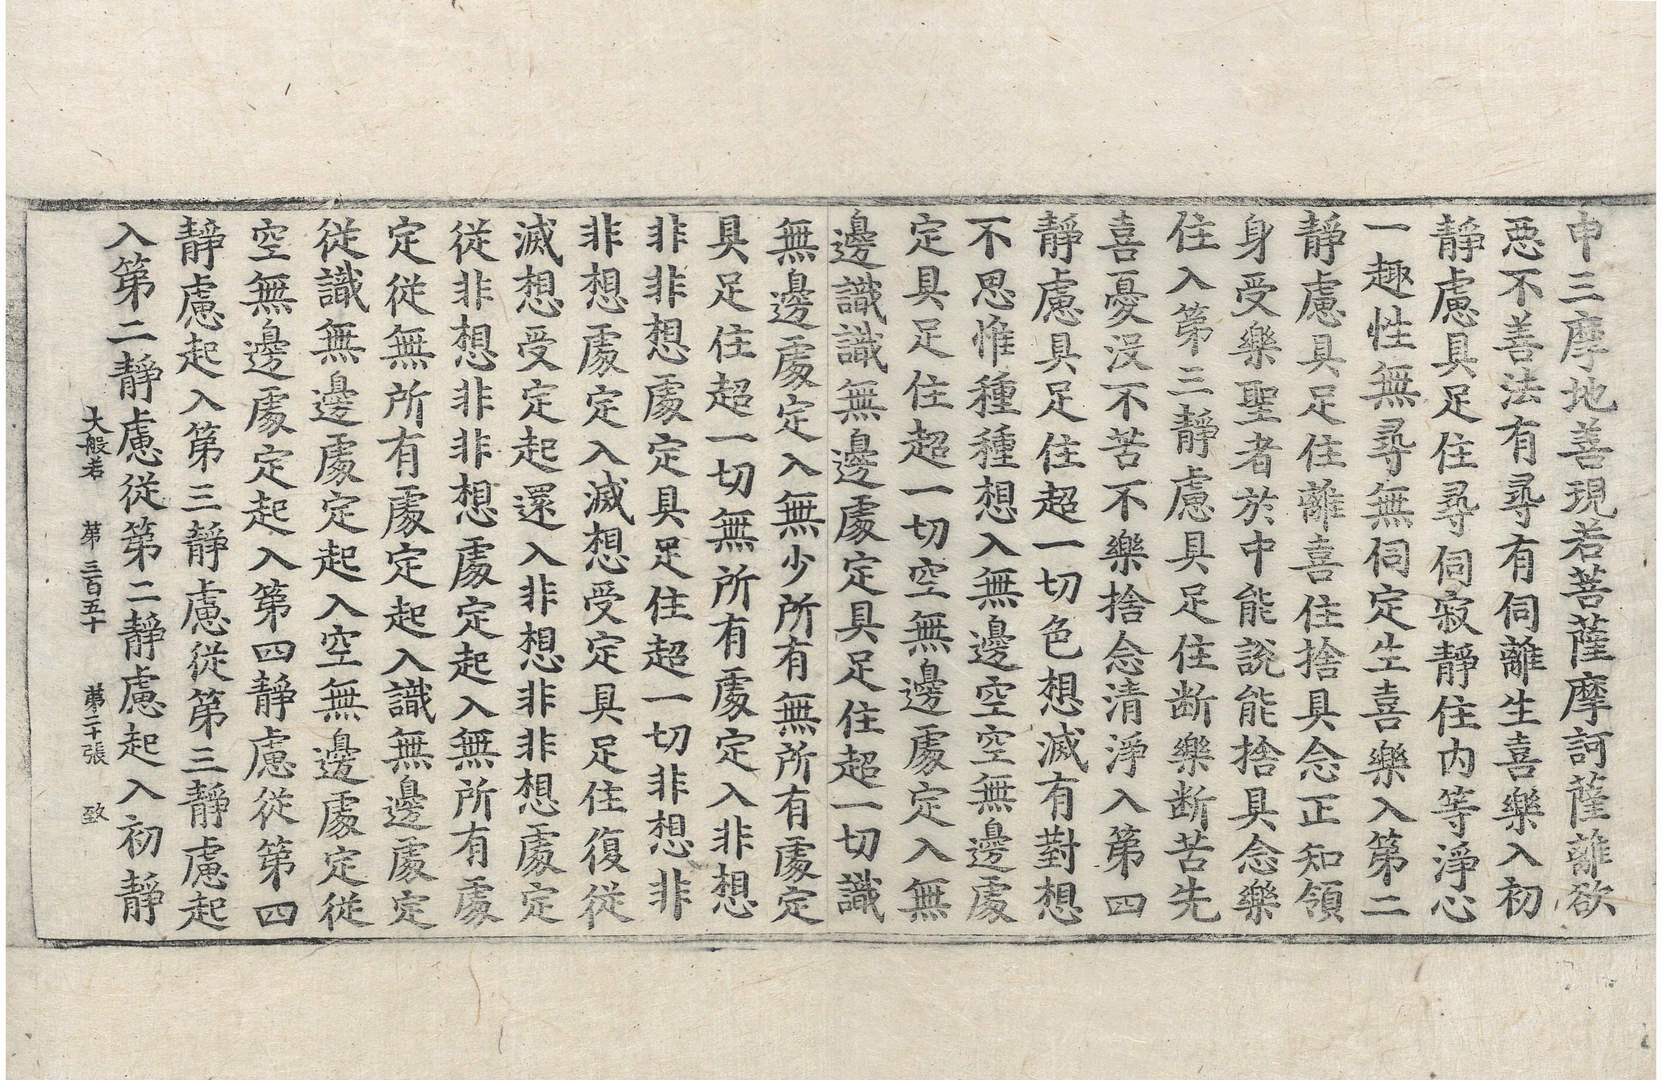 申三摩地善現若菩薩摩訶薩離欲
惡不善法有尋有伺離生喜樂入初
靜慮具足住尋伺寂靜住內等淨心
一趣性無尋無伺定生喜樂入第二
靜慮具足住離喜住捨具念正知領
身受樂聖者於中能說能捨具念樂
住入第三靜慮具足住断樂断苦先
喜憂沒不苦不樂捨念清淨入第四
靜慮具足住超一切色想滅有對想
不思惟種種想入無邊空空無邊處
定具足住超一切空無邊處定入無
邊識識無邊處定具足住超一切識
無邊處定入無少所有無所有處定
具足住超一切無所有處定入非想
非非想處定具足住超一切非想非
非想處定入滅想受定具足住復從
滅想受定起還入非想非非想處定
從非想非非想處定起入無所有處
定從無所有處定起入識無邊處定
從識無邊處定起入空無邊處定從
空無邊處定起入第四靜慮從第四
靜慮起入第三靜慮從第三靜慮起
入第二靜慮從第二靜慮起入初靜
大般若 第三百五十 第二十張 致